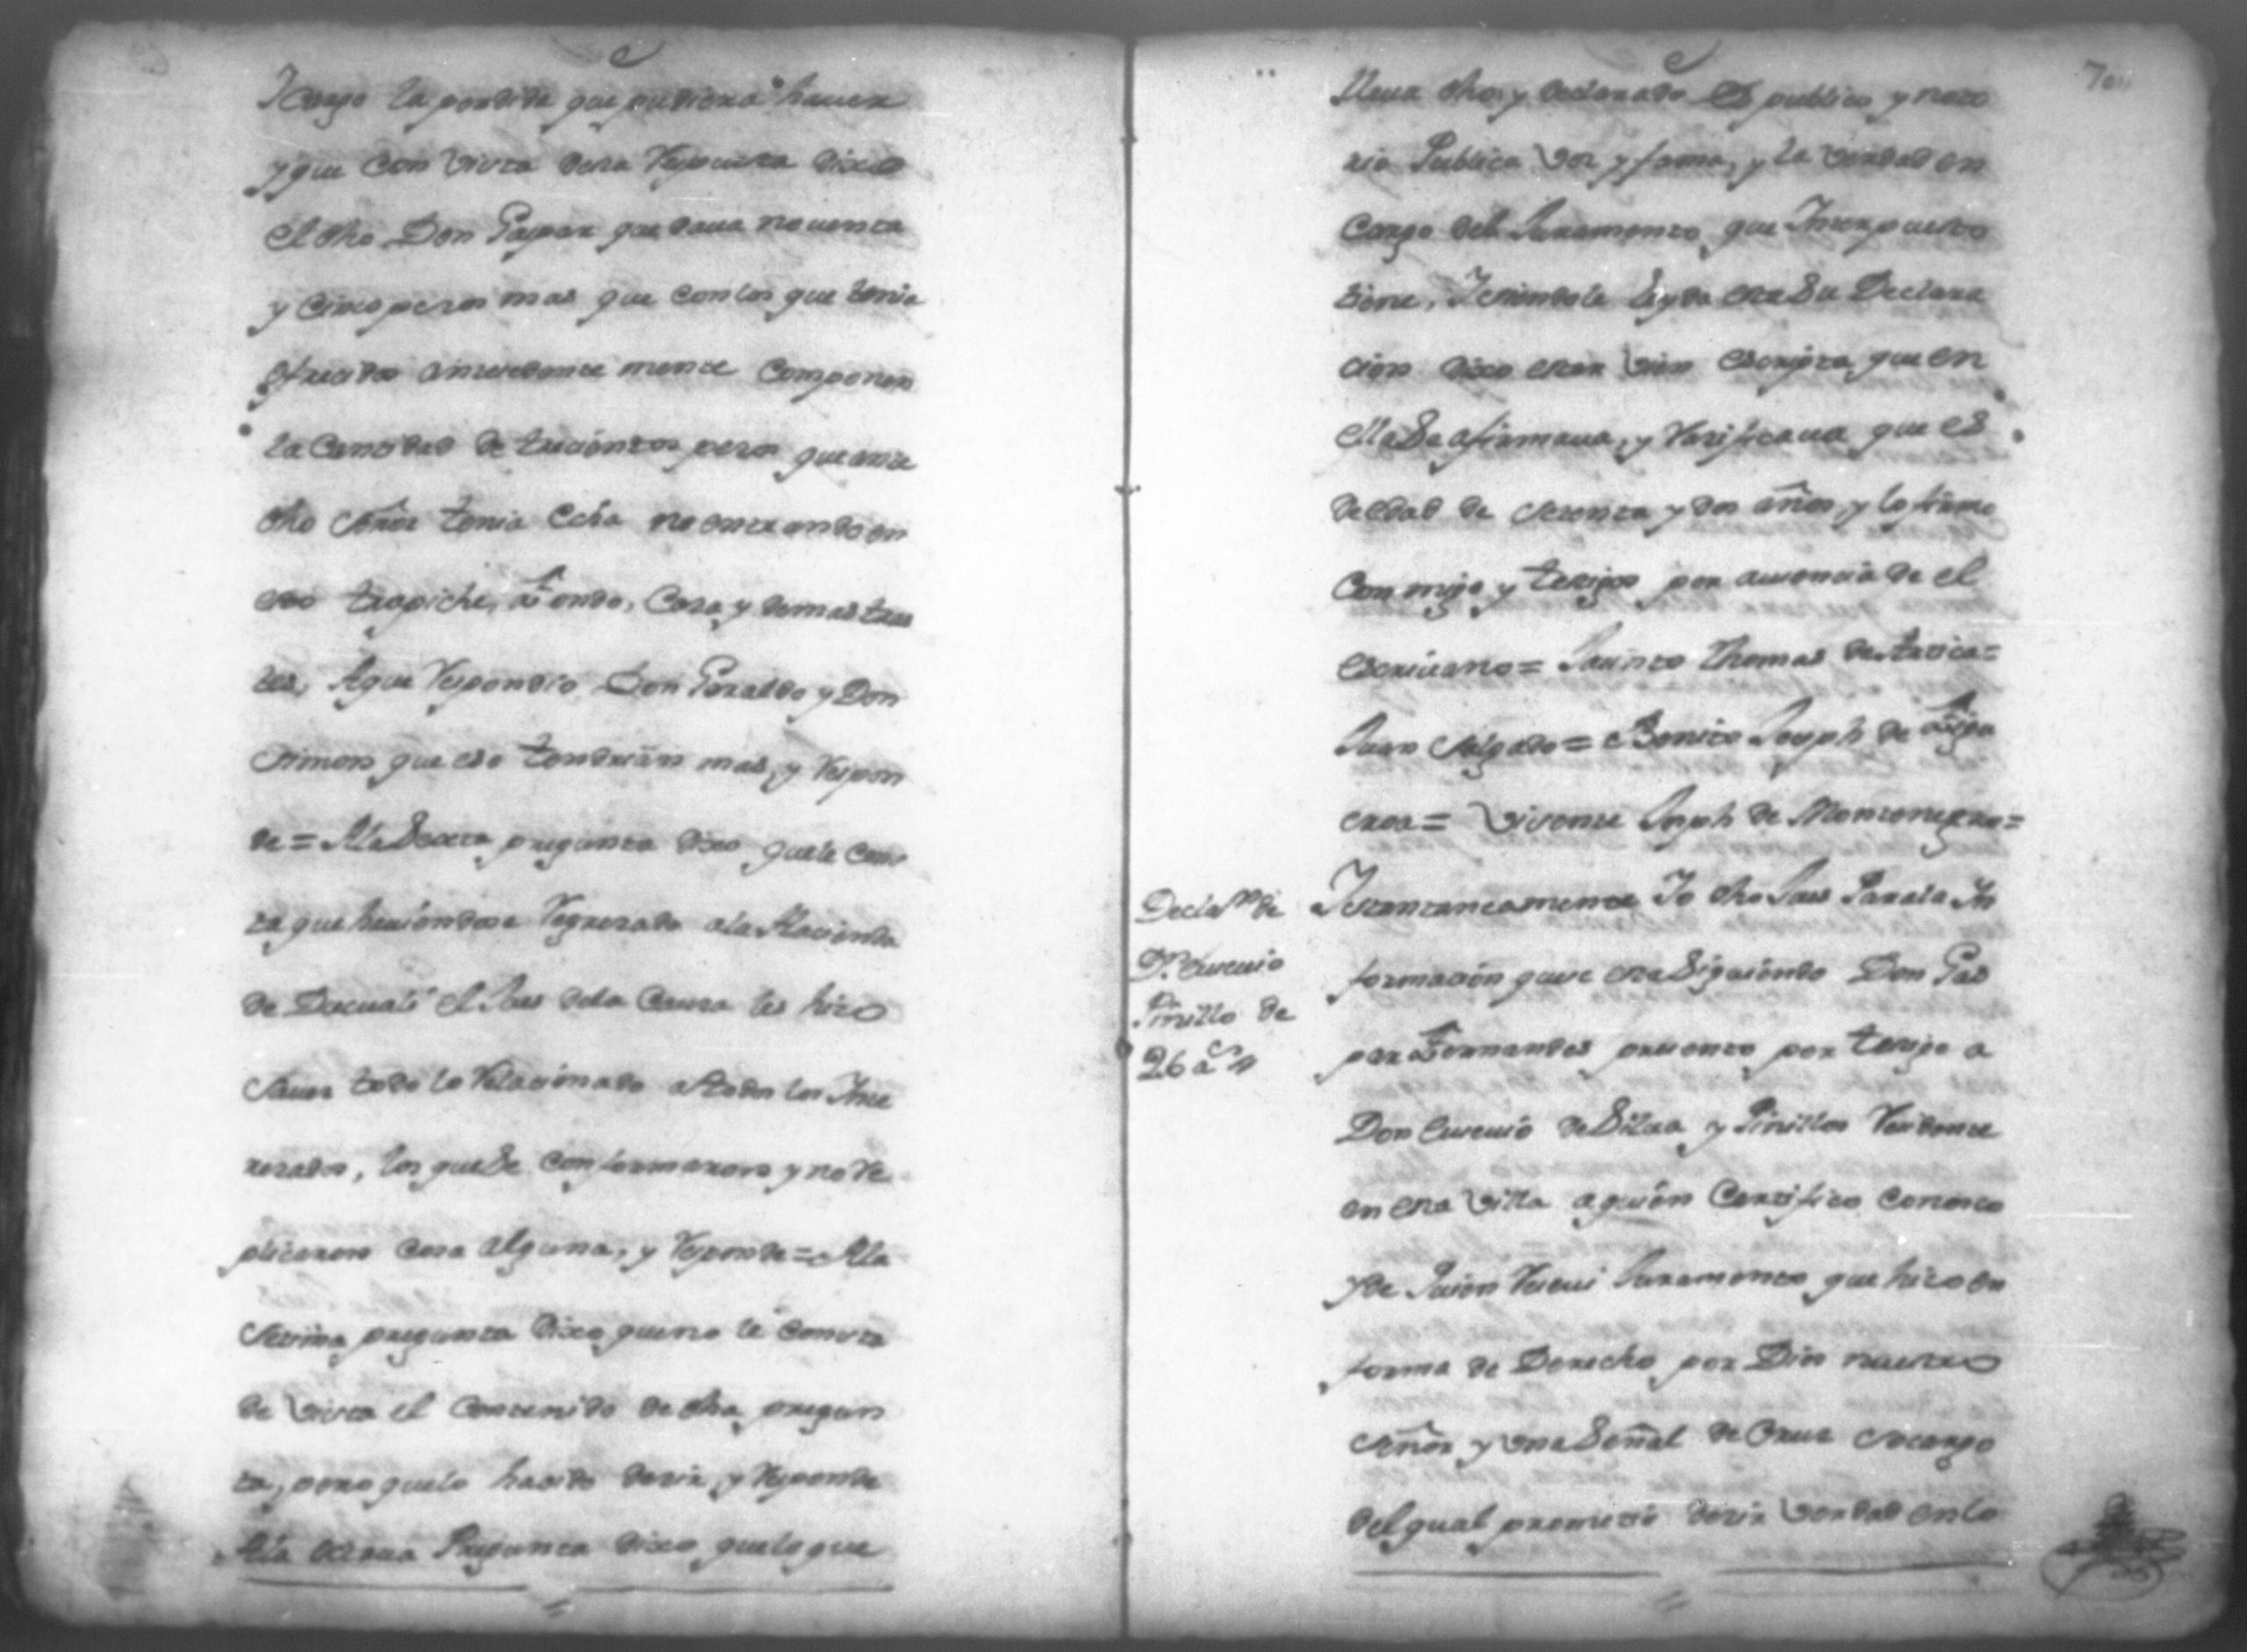 Icargo la perdida que pudiera haver
y que con vista desta Respuesta dixo
el dho Don Gaspar que dava noventa
y cinco pesos mas que con los que tenia
ofrecidos antesedente mente componen
la Cantidad de trecientos pesos que ante
dho señor tenia echa no entrando en
eso trapiche, fondo, Casa y demas tras
tes, A que Respondio Don Geraldo y Don
Simon que eso tendrian mas, y Respon
de = A la Sexta pregunta dixo que le cons
ta que haviendose Regresado a la Hacienda
de el Jues de la Causa les hizo
saver todo lo Relacionado a todos los Inte
resados, los que Se conformaron y no Re
plicaron cosa alguna, y Responde = A la
Setima pregunta dixo que no le consta
de vista el contenido de dha pregun
ta, pero que lo ha oido desir y Responde
A la octava Pregunta dixo que lo que
70
lleva dho y declarado Es publico y noto
rio Publica voz y fama, y la verdad en
cargo del Juramento que Interpuesto
tiene, I siendole leyda esta Su Declara
cion dixo estar vien escripta, que en
ella Se afirmava, y Ratificava que es
de edad de setenta y dos años, y lo firmo
Conmigo y testigos por ausencia de el
Escrivano = Jacinto Thomas de =
Juan Salgado = Benito Joseph de
= Vicente Joseph de Montenegro =
Decla.on de
Dn Eusevio
Pinillo de
26 a.s
Instantaneamente Io dho Jues Para la In
formacion que se esta Siguiendo Don Gas
par Fernandes presento por testigo a
Don Eusevio de Silva y Pinillos Residente
en esta villa a quien Certifico conosco
y de quien Recevi Juramento que hizo en
forma de Derecho por Dios nuestro
Señor y una Señal de Cruz so cargo
del qual prometio desir verdad en lo